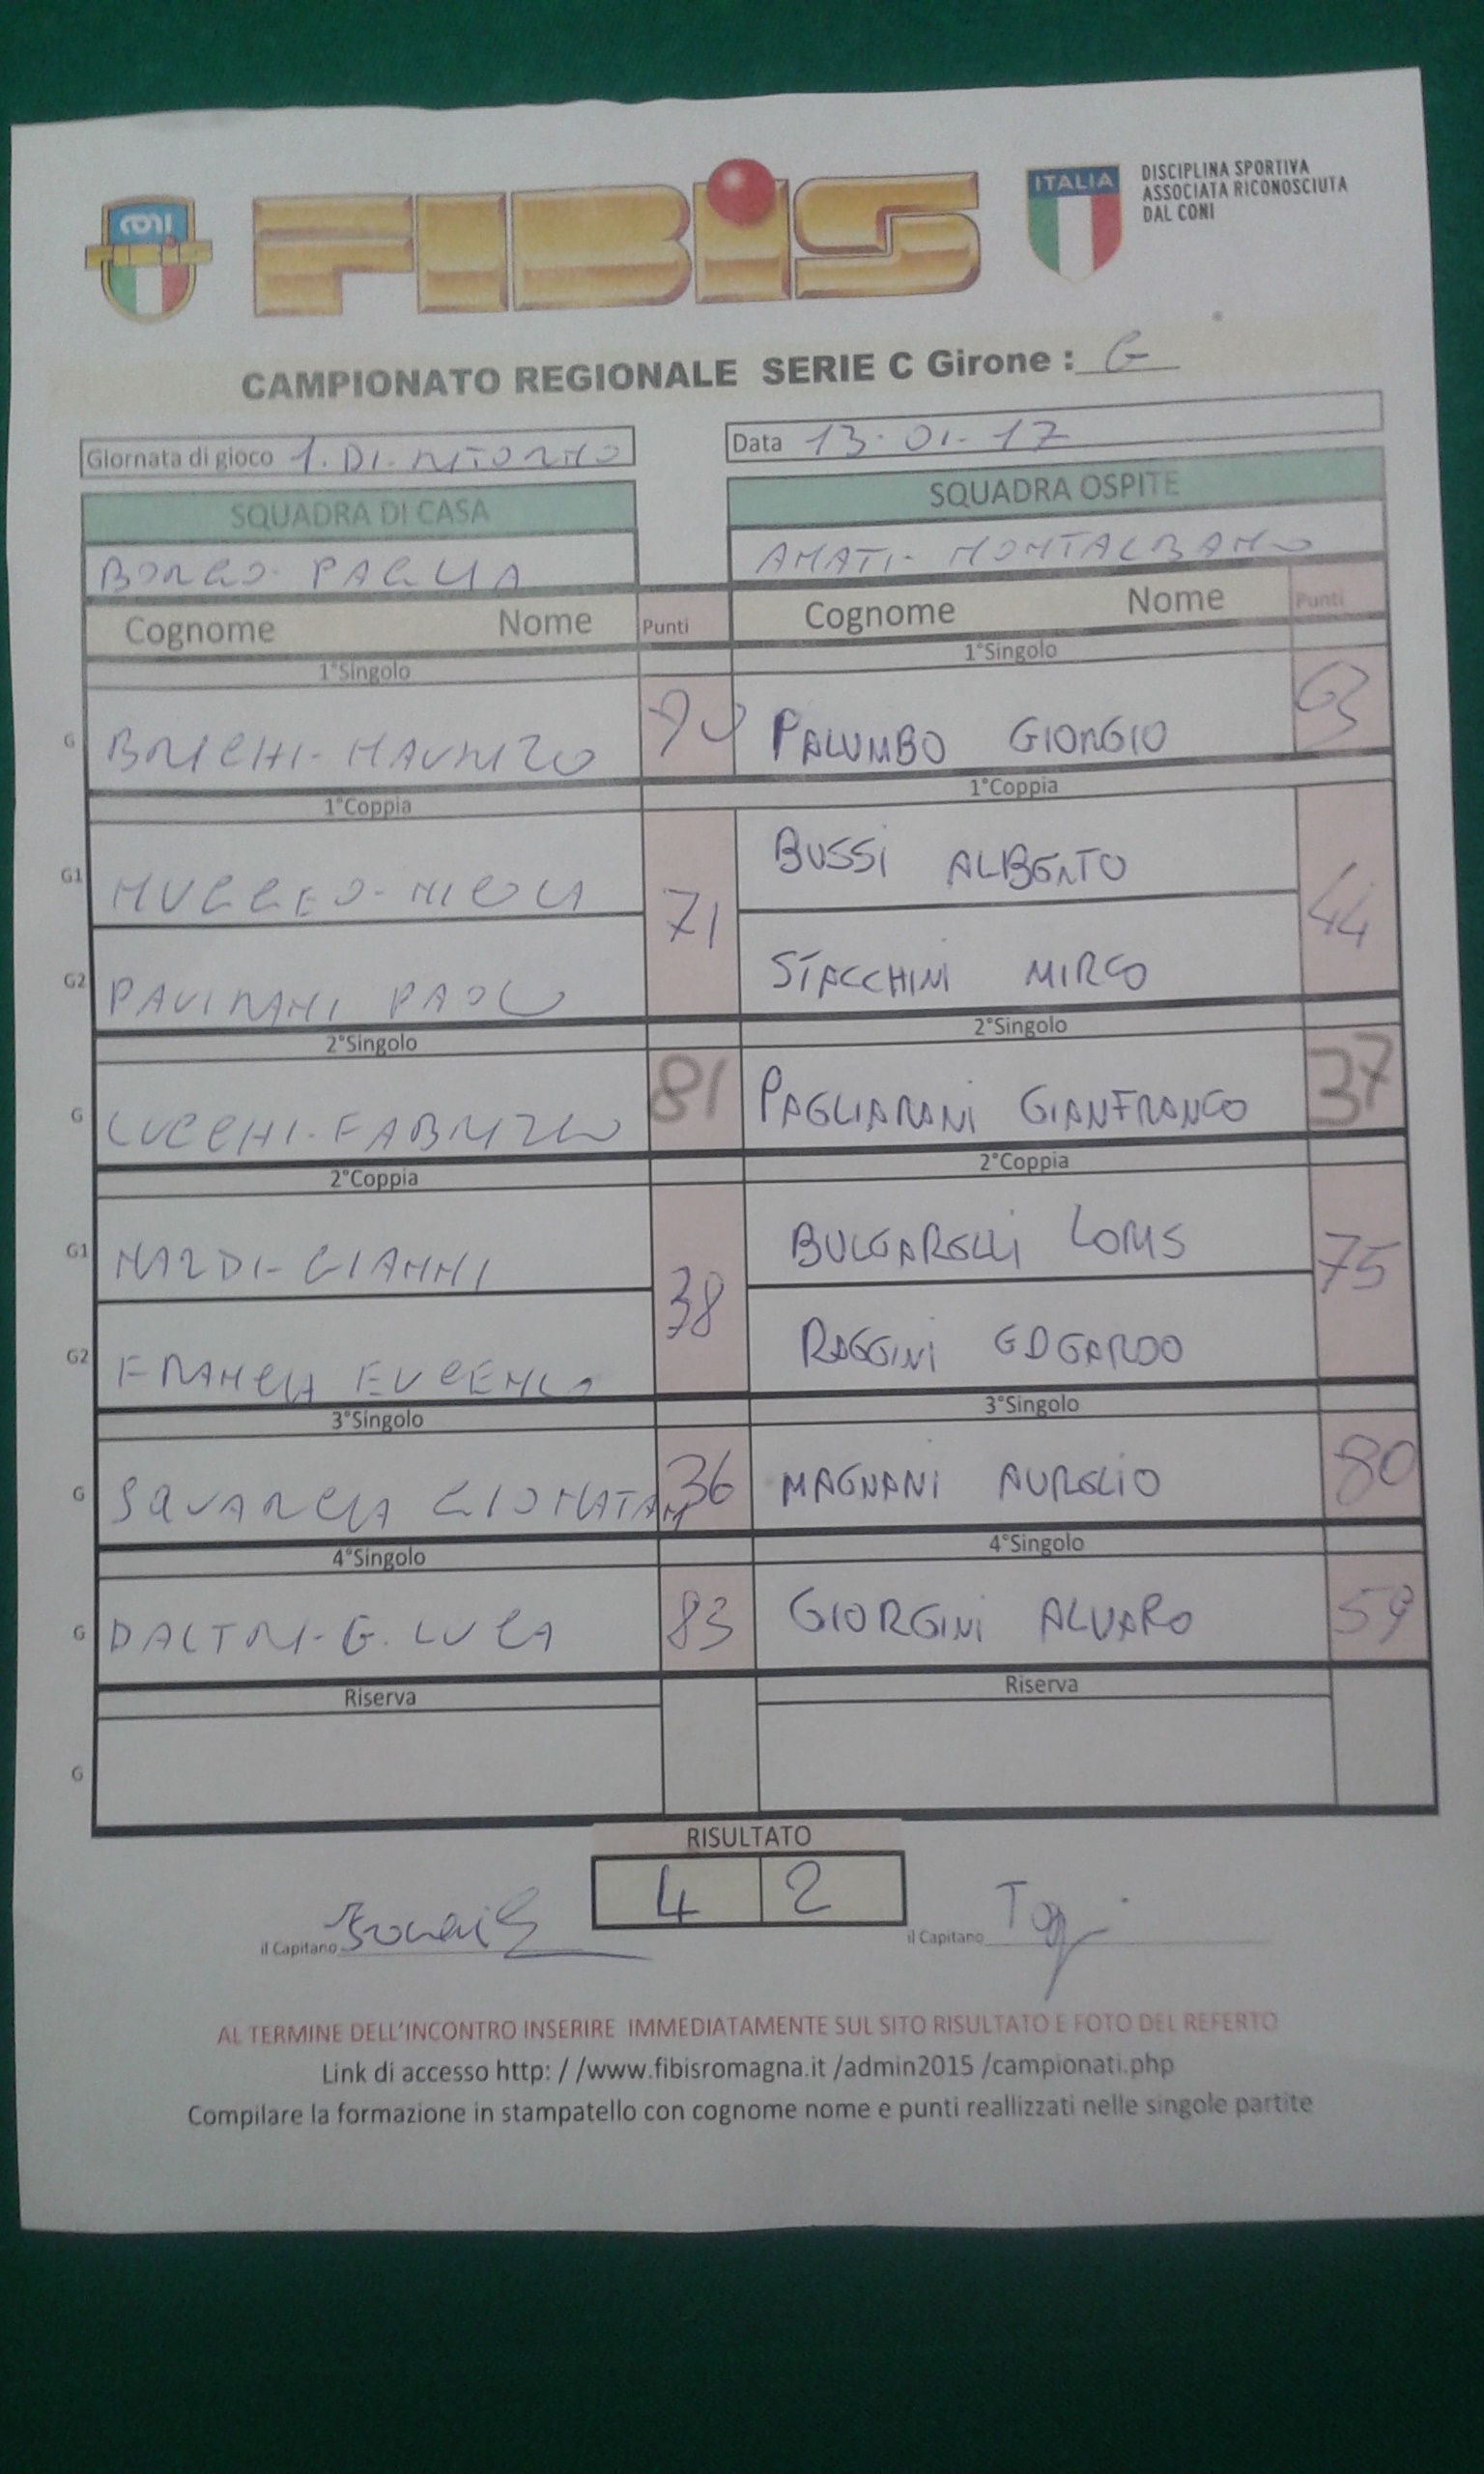 CONI
FIBIS
FIBIS
ITALIA
DISCIPLINA SPORTIVA
ASSOCIATA RICONOSCIUTA
DAL CONI
CAMPIONATO REGIONALE SERIE C Girone : G
Giornata di gioco 1. DI. RITORNO
Data 13-01-17
SQUADRA DI CASA
SQUADRA OSPITE
BORGO PAGLIA
AMATI- MONTALBANO
Cognome Nome Punti
Cognome Nome Punti
1°Singolo
1°Singolo
G BRICHI-MAURIZO 90
PALUMBO GIORGIO 63
1°Coppia
1°Coppia
G1 MUGGEO-NICOLA 71
BUSSI ALBERTO 44
G2 PAVIRANI PAOLO
STACCHINI MIRCO
2°Singolo
2°Singolo
G LUCCHI-FABRIZIO 81
PAGLIARANI GIANFRANCO 37
2°Coppia
2°Coppia
G1 NARDI-GIANNI 38
BULGARELLI LORIS 75
G2 FRANCIA EUGENIO
RAGGINI EDGARDO
3°Singolo
3°Singolo
G SQUARCIA GIONATAN 36
MAGNANI AURELIO 80
4°Singolo
4°Singolo
G DALTRI-G. LUCA 83
GIORGINI ALVARO 59
Riserva
Riserva
G
RISULTATO
4 2
il Capitano
il Capitano
AL TERMINE DELL'INCONTRO INSERIRE IMMEDIATAMENTE SUL SITO RISULTATO E FOTO DEL REFERTO
Link di accesso http: / /www.fibisromagna.it /admin2015 /campionati.php
Compilare la formazione in stampatello con cognome nome e punti reallizzati nelle singole partite